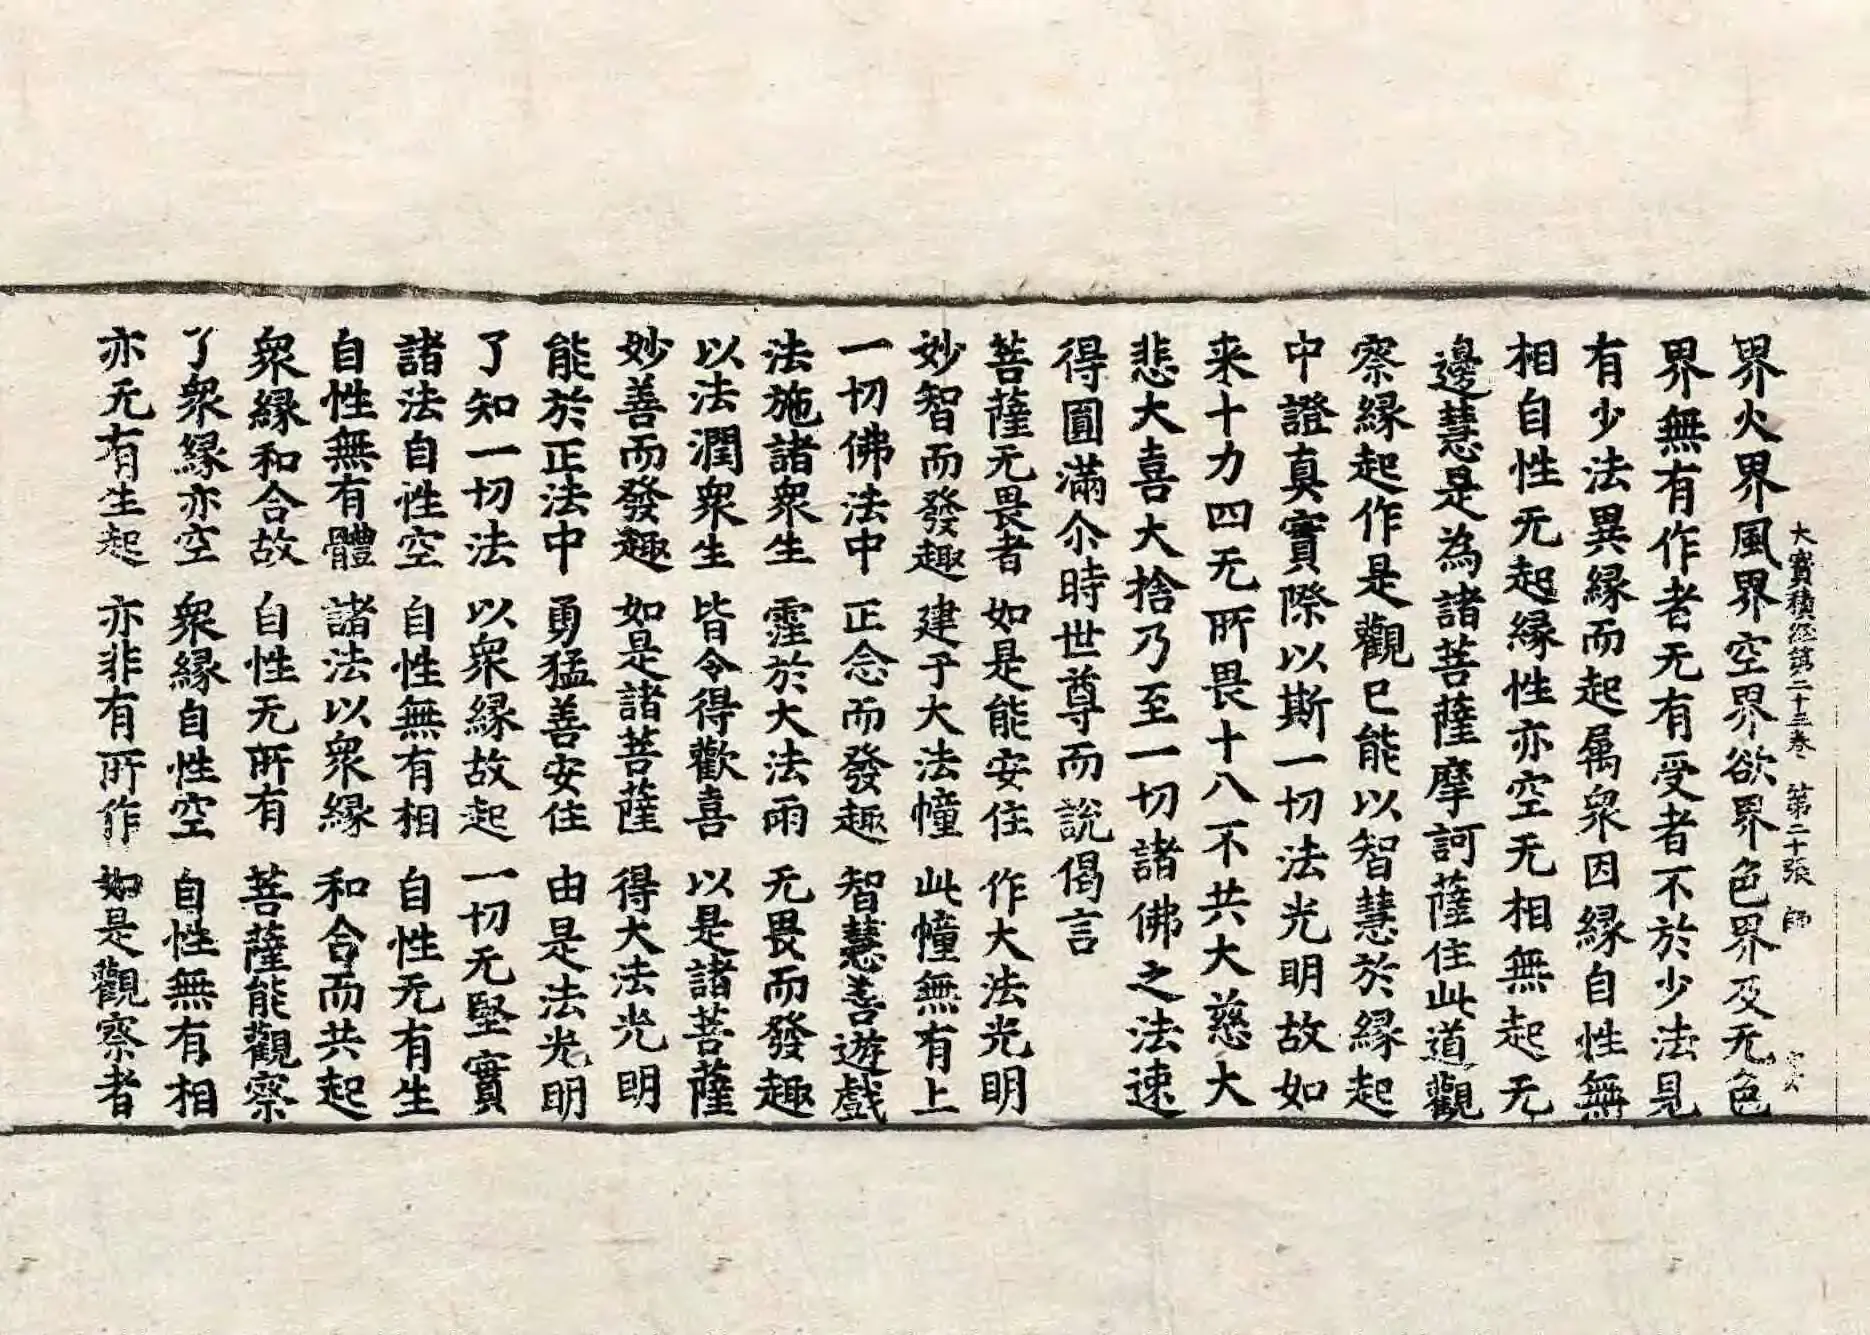 大寳積經第二十五卷 第二十張 師
界火界風界空界欲界色界及无色
界無有作者无有受者不於少法見
有少法異縁而起属衆因縁自性無
相自性无起縁性亦空无相無起无
邊慧是為諸菩薩摩訶薩住此道觀
察縁起作是觀已能以智慧於縁起
中證真實際以斯一切法光明故如
来十力四无所畏十八不共大慈大
悲大喜大捨乃至一切諸佛之法速
得圓滿尒時世尊而說偈言
菩薩无畏者 如是能安住 作大法光明
妙智而發趣 建于大法幢 此幢無有上
一切佛法中 正念而發趣 智慧善遊戲
法施諸衆生 霔於大法雨 无畏而發趣
以法潤衆生 皆令得歡喜 以是諸菩薩
妙善而發趣 如是諸菩薩 得大法光明
能於正法中 勇猛善安住 由是法光明
了知一切法 以衆縁故起 一切无堅實
諸法自性空 自性無有相 自性无有生
自性無有體 諸法以衆縁 和合而共起
衆縁和合故 自性无所有 菩薩能觀察
了衆縁亦空 衆縁自性空 自性無有相
亦无有生起 亦非有所作 如是觀察者